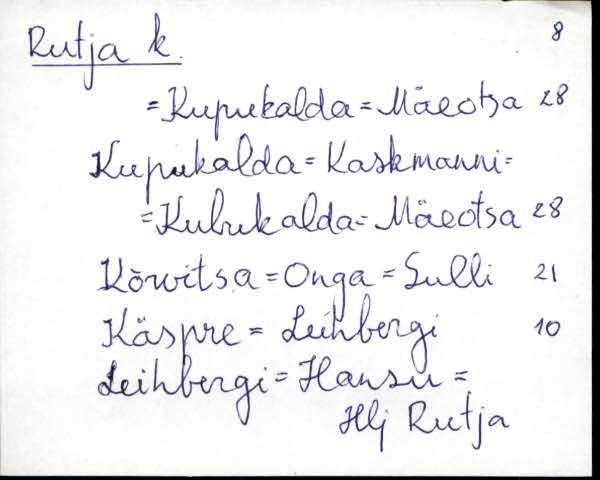 Rutja k. 8
= Kupukalda = Mäeotsa 28
Kupukalda = Kaskmanni =
= Kubukalda = Mäeotsa 28
Kõrvitsa = Onga = Sulli 21
Käspre = Leihbergi 10
Leihbergi = Hansu =
Hlj Rutja